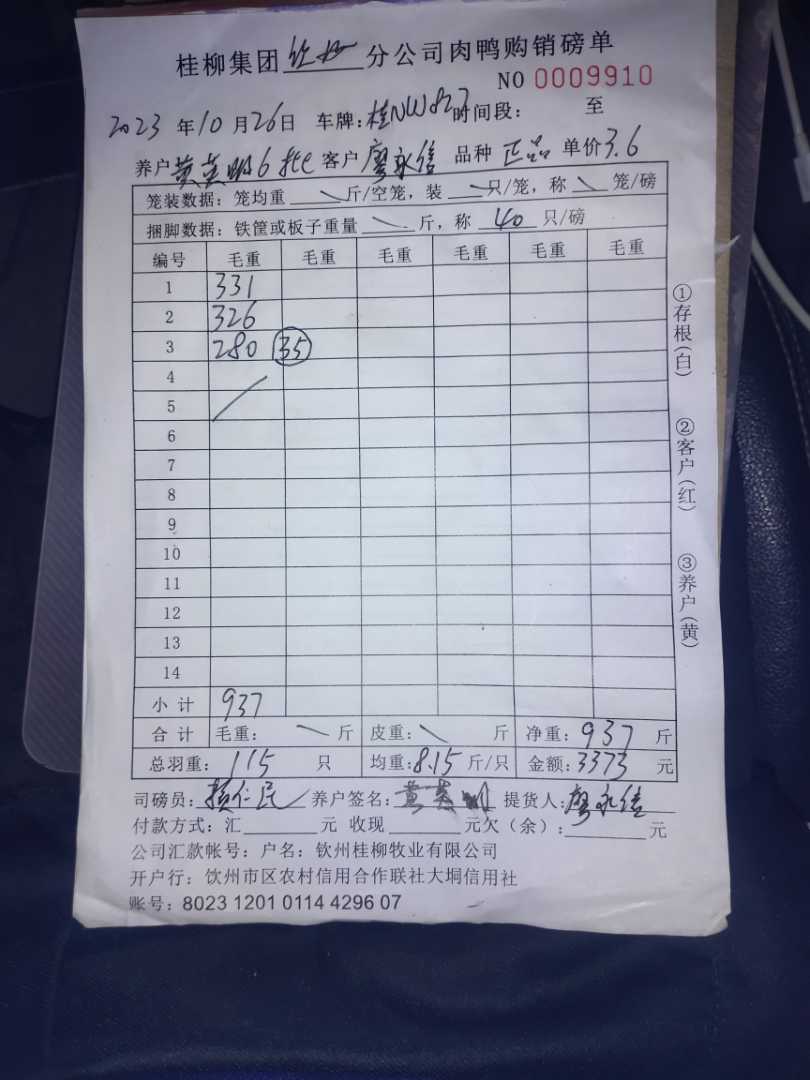 桂柳集团钦州分公司肉鸭购销磅单
NO 0009910
2023年10月26日 车牌:桂NW827 时间段: 至
养户黄英明6批 客户廖永信 品种 正品 单价3.6
笼装数据:笼均重 斤/空笼,装 只/笼,称 笼/磅
捆脚数据:铁筐或板子重量 斤,称 40 只/磅
编号 毛重 毛重 毛重 毛重 毛重 毛重
1 331
2 326
3 280 35
4
5
6
7
8
9
10
11
12
13
14
小计 937
合计 毛重: 斤 皮重: 斤 净重:937斤
总羽重:115 只 均重:8.15斤/只 金额:3373元
司磅员: 仁民 养户签名:黄英明 提货人:廖永信
付款方式:汇 元 收现 元欠(余): 元
公司汇款帐号:户名:钦州桂柳牧业有限公司
开户行:饮州市区农村信用合作联社大垌信用社
账号:8023 1201 0114 4296 07
①存根(白)
②客户(红)
③养户(黄)